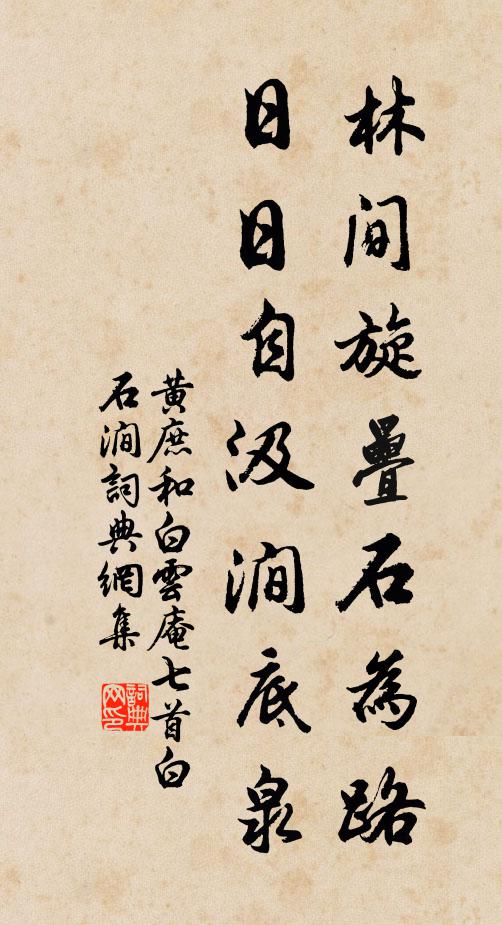 林間旋疊石為路
日日自汲澗底泉
黃庶和白雲庵七首白
石澗詞典網集
詞典
网印